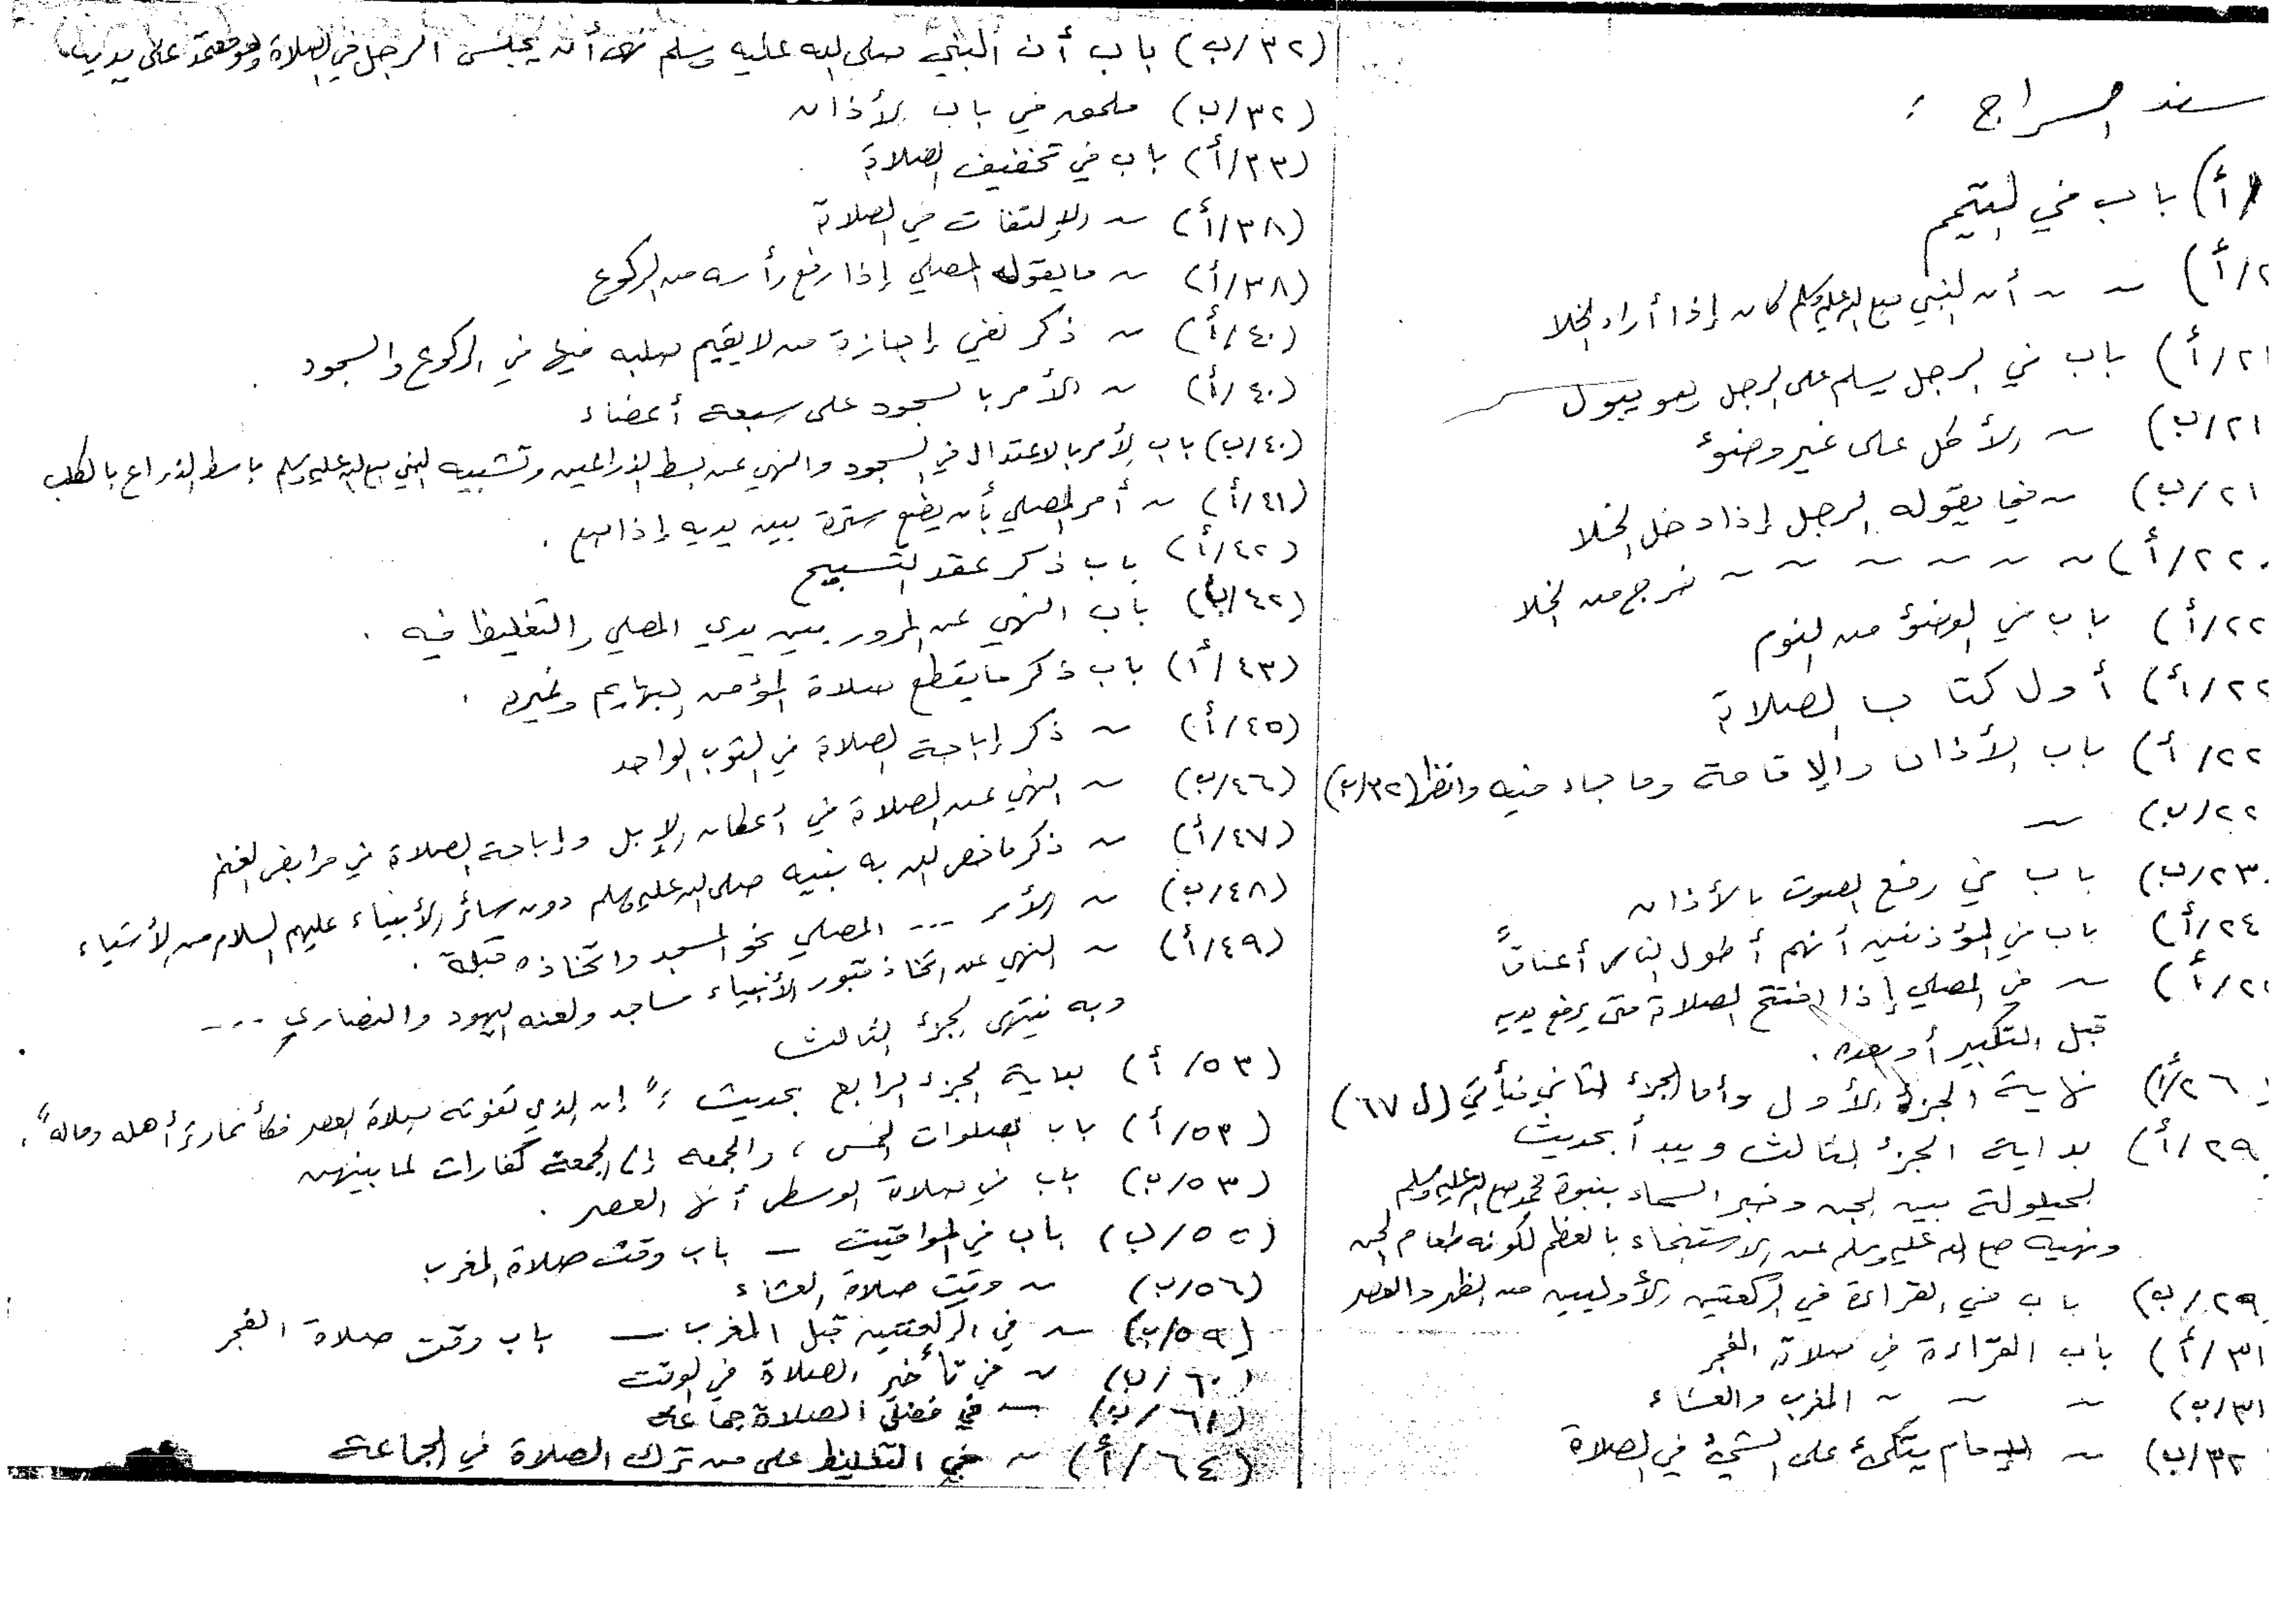 سند السراج :
/أ) باب في التيمم
٢/أ) ~ ~ أن النبي صلى الله عليه وسلم كان إذا أراد الخلا
٢١/أ) باب في الرجل يسلم على الرجل وهو يبول
٢١/ب) ~ الأكل على غير وضوء
٢١/ب) ~ فيما يقوله الرجل إذا دخل الخلا
٢٢/أ) ~ ~ ~ ~ ~ ~ خرج من الخلا
٢٢/أ) باب في الوضوء من النوم
٢٢/أ) أول كتاب الصلاة
٢٢/أ) باب الأذان والإقامة وما جاء فيه وانظر (٣٢/ب)
٢٢/ب) ~
٢٣/ب) باب في رفع الصوت بالأذان
٢٤/أ) باب في المؤذنين أنهم أطول الناس أعناقاً
/أ) ~ في المصلي إذا افتتح الصلاة متى يرفع يديه
قبل التكبير أو بعده .
٢٦/أ) نهاية الجزء الأول وأما الجزء الثاني فيأتي (ل ٦٧)
٢٩/أ) بداية الجزء الثالث ويبدأ بحديث
الحيلولة بين الجن وخبر السماء بنبوة محمد صلى الله عليه وسلم
ونهيه صلى الله عليه وسلم عن الاستنجاء بالعظم لكونه طعام الجن
٢٩/ب) باب في القراءة في الركعتين الأوليين من الظهر والعصر
٣١/أ) باب القراءة في صلاة الفجر
٣١/ب) ~ ~ ~ المغرب والعشاء
٣٢/ب) ~ الإمام يتكئ على الشيء في الصلاة
(٣٢/ب) باب أن النبي صلى الله عليه وسلم نهى أن يجلس الرجل في الصلاة وهو معتمد على يديه
(٣٢/ب) ملحق في باب الأذان
(٣٣/أ) باب في تخفيف الصلاة
(٣٨/أ) ~ الإلتفات في الصلاة
(٣٨/أ) ~ ما يقوله المصلي إذا رفع رأسه من الركوع
(٤٠/أ) ~ ذكر نفي إجازة من لا يقيم صلبه فيها في الركوع والسجود
(٤٠/أ) ~ الأمر بالسجود على سبعة أعضاء
(٤٠/ب) باب الأمر بالاعتدال في السجود والنهي عن بسط الذراعين وتشبيه النبي صلى الله عليه وسلم باسط الذراع بالكلب
(٤١/أ) ~ أمر المصلي بأن يضع سترة بين يديه إذا صلى .
(٤٢/أ) باب ذكر عقد التسبيح
(٤٢/ب) باب النهي عن المرور بين يدي المصلي والتغليظ فيه .
(٤٣/أ) باب ذكر ما يقطع صلاة المؤمن البهايم وغيره .
(٤٥/أ) ~ ذكر إباحة الصلاة في الثوب الواحد
(٤٦/ب) ~ النهي عن الصلاة في أعطان الإبل وإباحة الصلاة في مرابض الغنم
(٤٧/أ) ~ ذكر ما خص الله به نبيه صلى الله عليه وسلم دون سائر الأنبياء عليهم السلام من الأشياء
(٤٨/ب) ~ الأمر --- المصلي نحو المسجد واتخاذه قبلة .
(٤٩/أ) ~ النهي عن اتخاذ قبور الأنبياء مساجد ولعنه اليهود والنصارى ---
وبه ينتهي الجزء الثالث
(٥٣/أ) بداية الجزء الرابع بحديث : " إن الذي تفوته صلاة العصر فكأنما وتر أهله وماله " .
(٥٣/أ) باب الصلوات الخمس ، والجمعه إلى الجمعة كفارات لما بينهن
(٥٣/ب) باب في صلاة الوسطى أنها العصر .
(٥٥/ب) باب في المواقيت - باب وقت صلاة المغرب
(٥٦/ب) ~ وقت صلاة العشاء
(٥٩/ب) ~ في الركعتين قبل المغرب - باب وقت صلاة الفجر
(٦٠/ب) ~ في تأخير الصلاة في الوقت
(٦١/ب) ~ في فضل الصلاة جماعة
(٦٤/أ) ~ في التغليظ على من ترك الصلاة في الجماعة